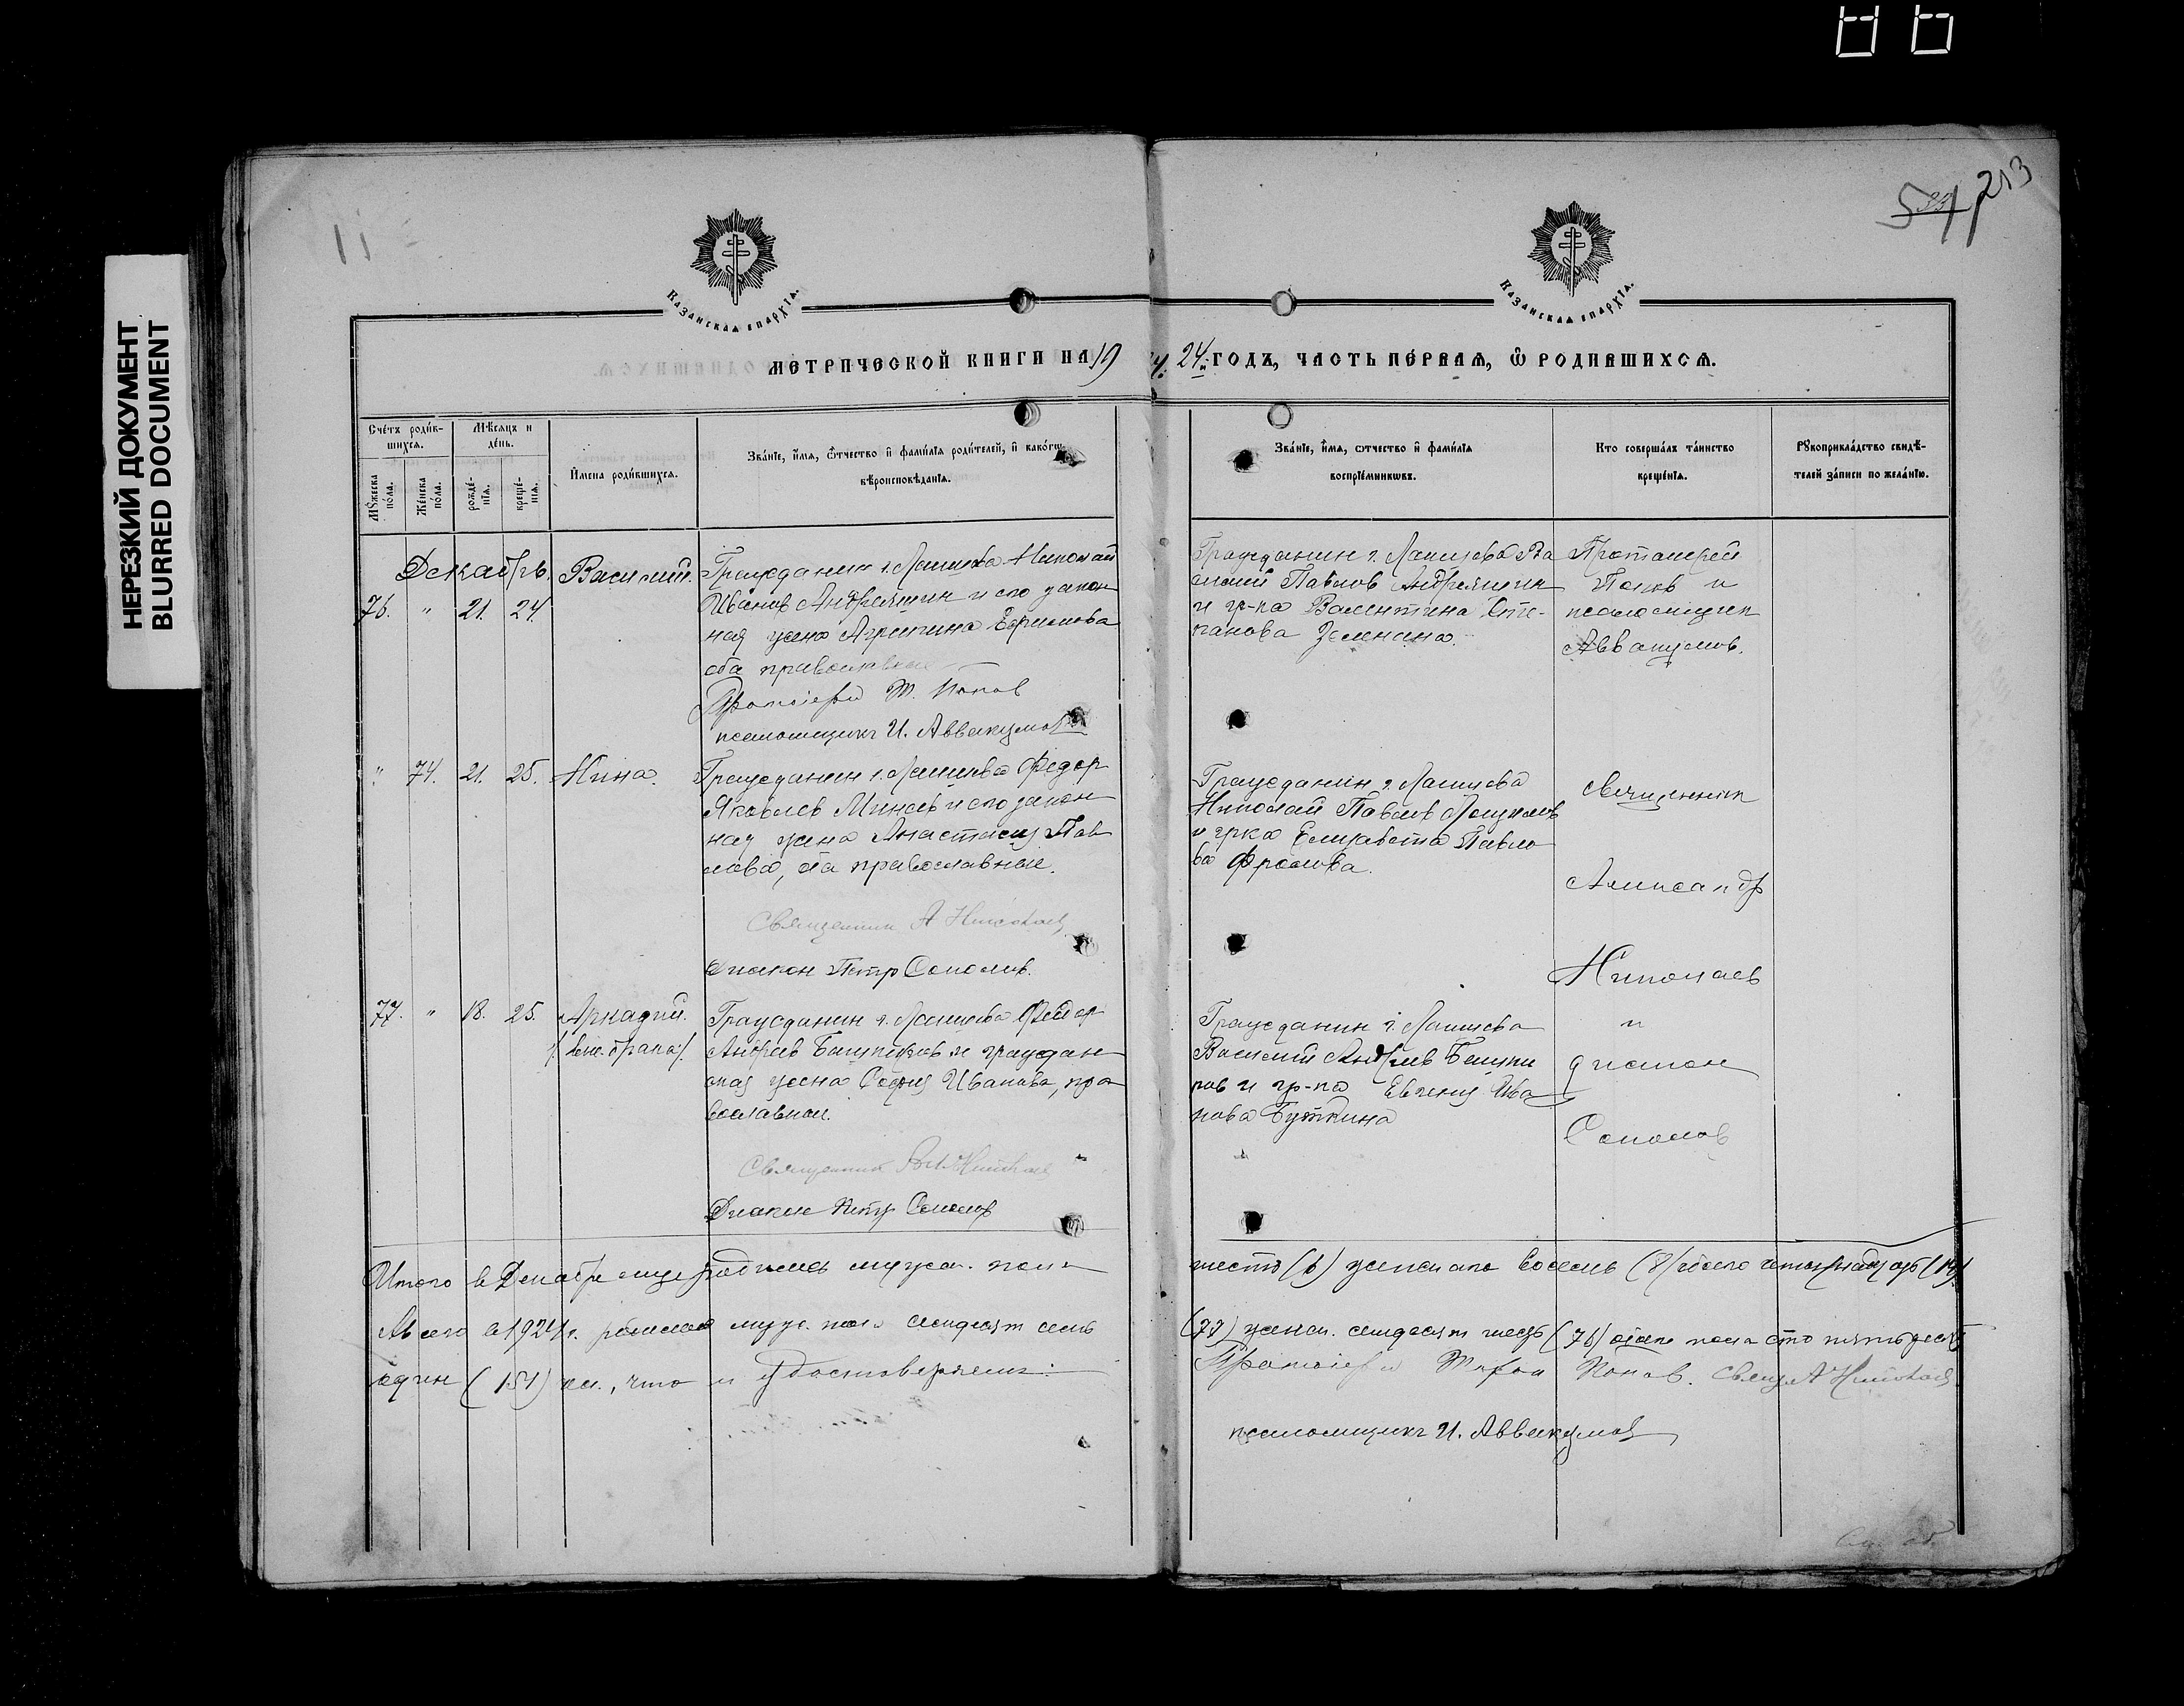 НЕРЕЗКИЙ ДОКУМЕНТ
BLURRED DOCUMENT
213
Казанская епархїа.
Казанская епархїа.
МЕТРИЧЕСКОЙ КНИГИ НА 19
24 ГОДЪ, ЧАСТЬ ПЕРВАЯ, Ѡ РОДИВШИХСЯ.
Счетъ родив-
шихся.
Мѣсяцъ и
день.
Мужеска
пола.
Женска
пола.
рожде-
нїя.
креще-
нїя.
Имена родившихся.
Званїе, имя, ѿтчество и фамилїя родителей, и какогѡ
вѣроисповѣданїя.
Званїе, имя, ѿтчество и фамилїя
воспрїемникѡвъ.
Кто совершалъ таинство
крещенїя.
Рукоприкладство свидѣ-
телей записи по желанїю.
Декабрь.
76. " 21. 24. Василий.
Гражданин г. Лаишева Николай
Иванов Андреянин и его закон
ная жена Агрипина Ефимова
оба православные
Протоіерей Т. Попов
псаломщикъ И. Аввакумов
Гражданин г. Лаишева Ва
силий Павлов
и гр-ка Валентина Сте-
панова Зеленина.
Протоиерей
Попов и
псаломщик
Аввакумов.
" 74. 21. 25. Нина.
Гражданин г. Лаишева Федор
Яковлев Минеев и его закон
ная жена Анастасия Пав
лова, оба православные.
Священник А Николаев
Диакон Петр Соколов.
Гражданин г. Лаишева
Николай Павлов
и грка Елизавета Павло
ва Фролова.
Священник
Александр
Николаев
и
диакон
Соколов
77. " 18. 25. Аркадий.
/. вне брака/.
Гражданин г. Лаишева Федор
Андреев Башкиров и граждан
ская жена София Иванова, пра
вославные.
Священник Николаев
Диакон Петр Соколов
Гражданин г. Лаишева
Василий Андреев Башки
ров и гр-ка Евгения Ива
нова Буткина
Итого в Декабре м-це родилось мужск. пола
шесть (6) женскаго восемь (8) обоего четырнадцать (14)
А всего в 1924 г. родилось муж. пола семьдесят семь
(77) женск. семьдесят шесть (76) обоего пола сто пятьдесят
один (151) чел., что и удостоверяем:
Протоіерей Тихон Попов. Свящ А Николаев
псаломщикъ И. Аввакумов